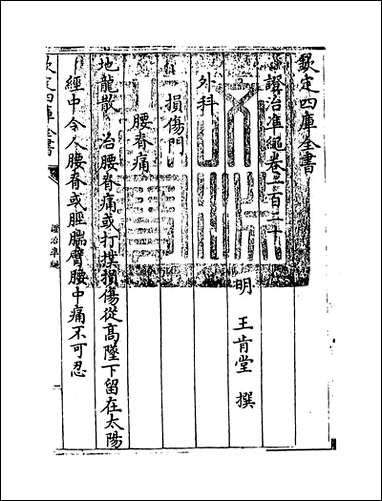 欽定四庫全書
證治凖繩卷一百二十
明 王肯堂 撰
外科
損傷門
腰脊痛
地龍散 治腰脊痛或打撲損傷從高墜下留在太陽
經中令人腰脊或脛腨臂腰中痛不可忍
欽定四庫全書
證治凖繩
文淵閣寶